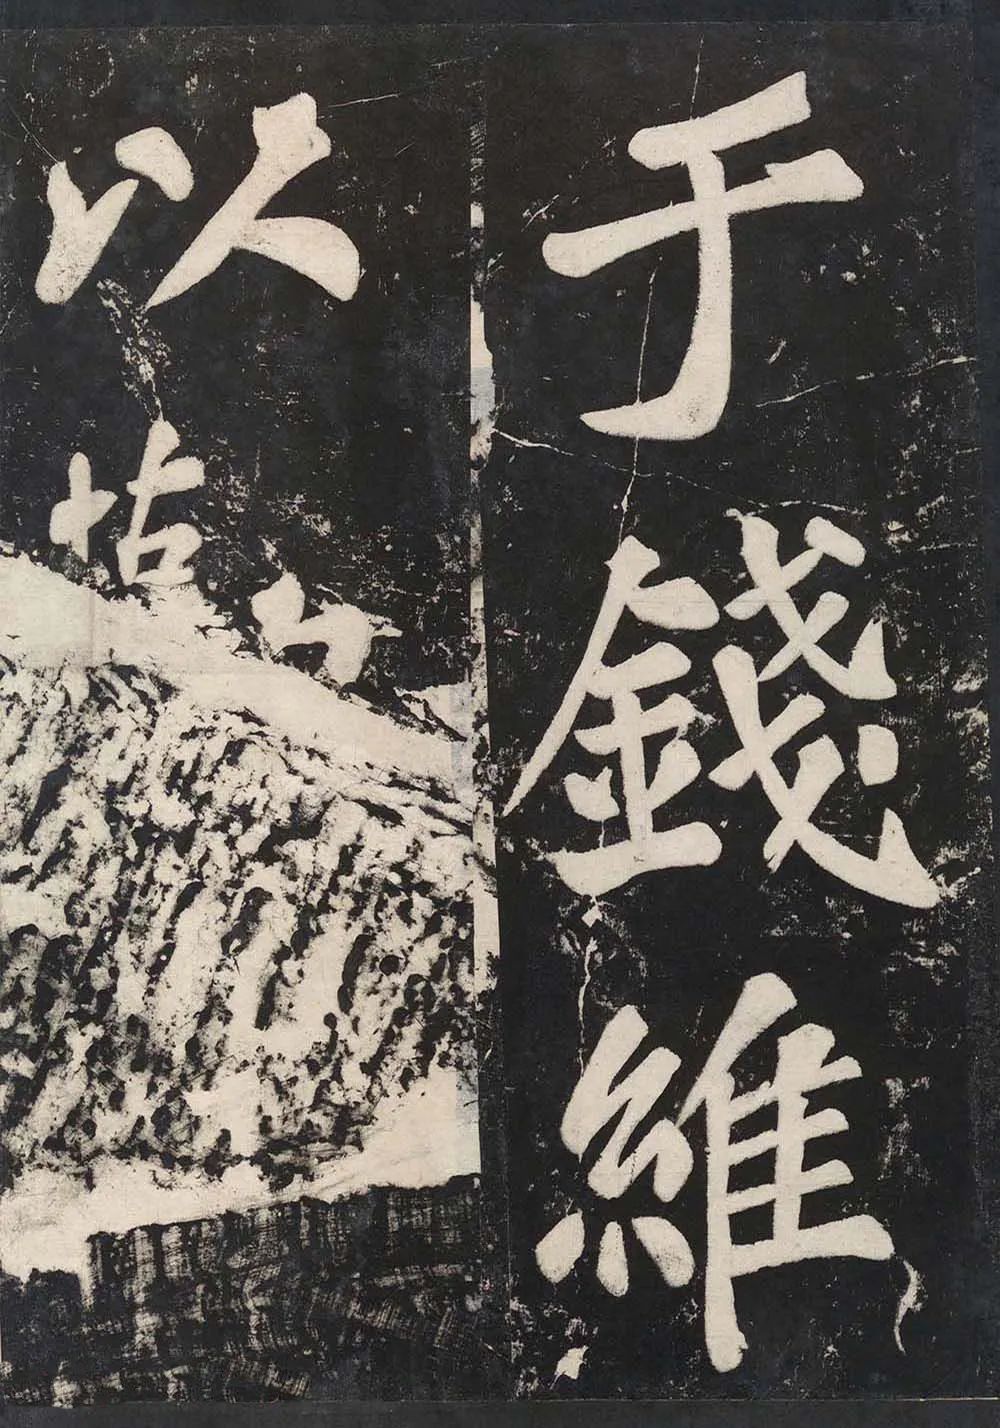 于錢維
以怙